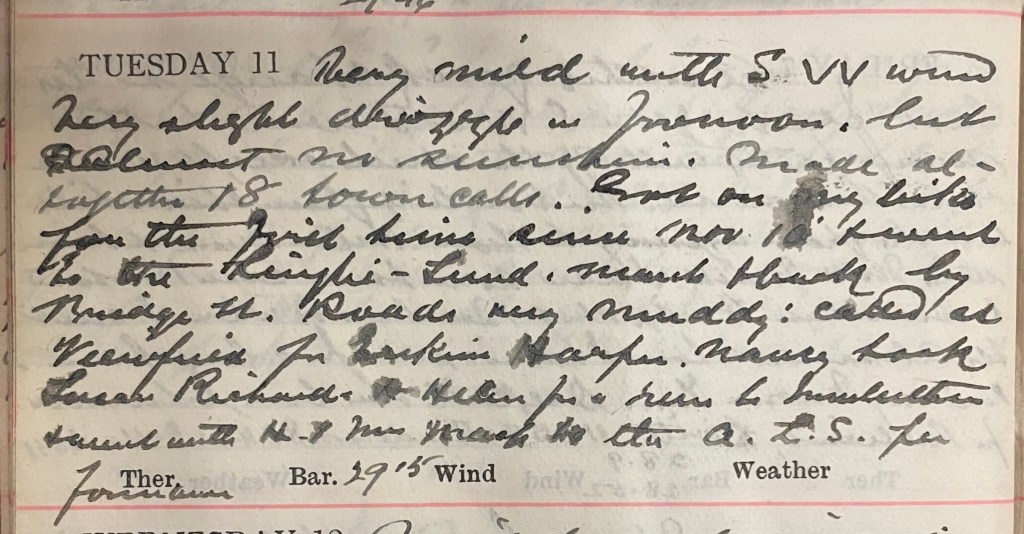 TUESDAY 11 Very mild with S W wind
very slight drizzle in forenoon. but
almost no sunshine. Made al-
together 18 town calls. Got on my bike
for the first time since Nov 18 & went
to the Lund. & back by
Bridge St. Roads very muddy: called at
for Erskine Harper. Nancy took
Susan Richards & Helen for a run to
& went with H. & Mrs to the A. L. S. for
Ther. Bar. 29 15 Wind Weather